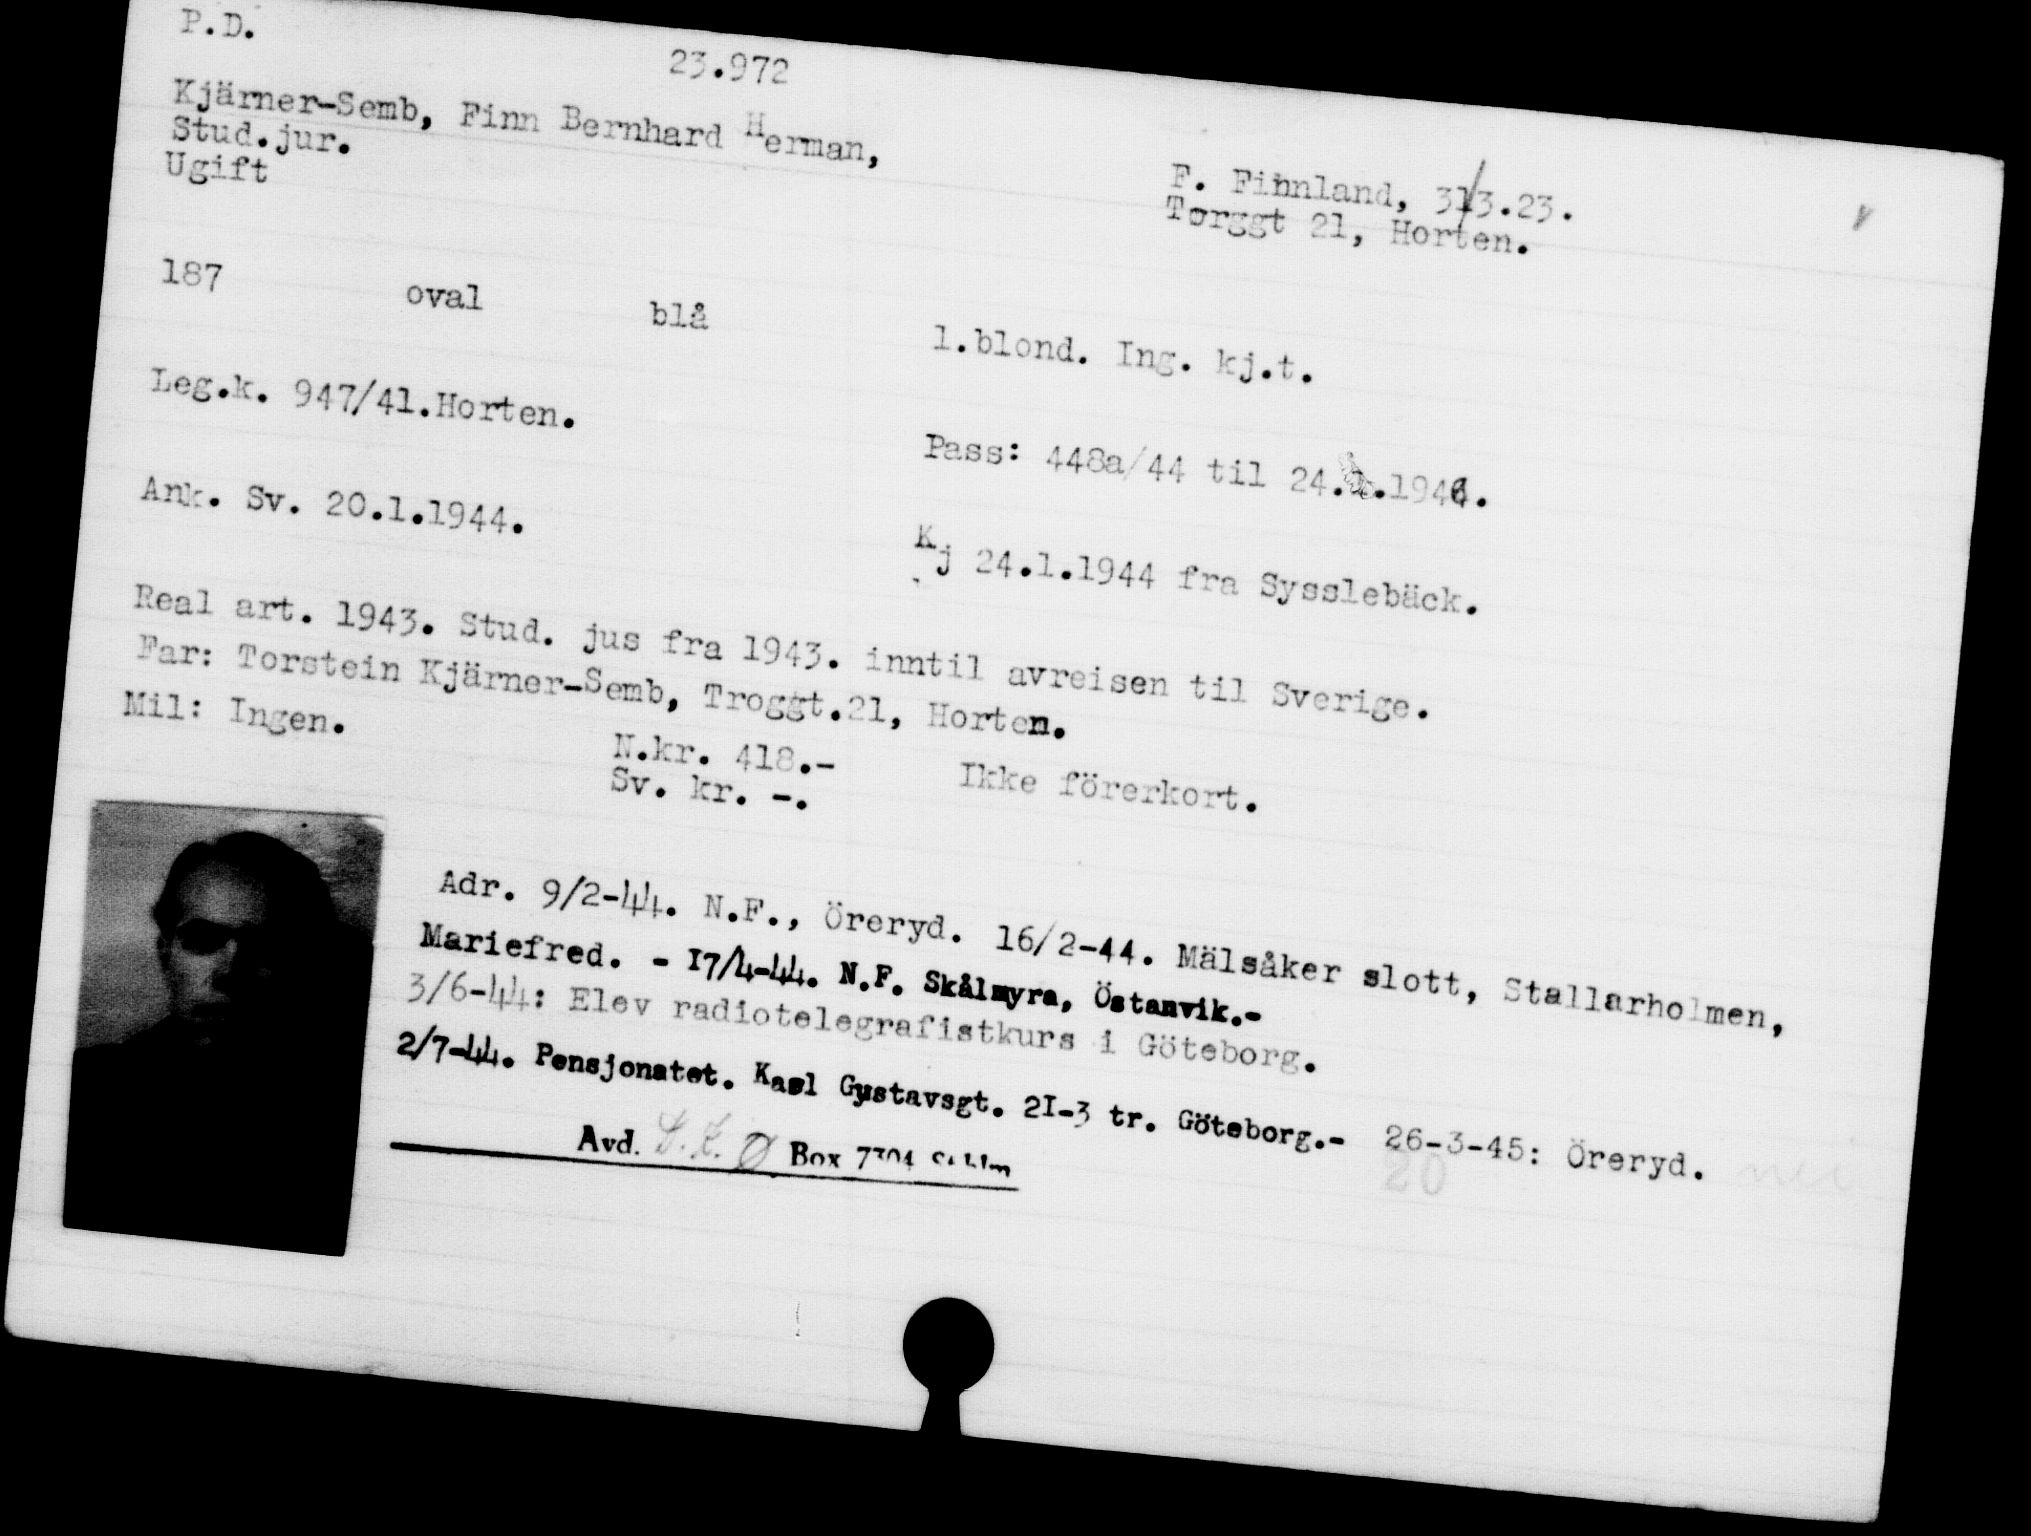 P.D.
23.972
Kjärner-Semb, Finn Bernhard Herman,
Stud.jur.
Ugift
F. Finnland, 31/3.23.
Torggt 21, Horten.
187 oval blå l.blond. Ing. kj.t.
Leg.k. 947/41.Horten.
Pass: 448a/44 til 24.1.1946.
Ank. Sv. 20.1.1944.
Kj 24.1.1944 fra Sysslebäck.
Real art. 1943. Stud. jus fra 1943. inntil avreisen til Sverige.
Far: Torstein Kjärner-Semb, Troggt.21, Horten.
Mil: Ingen.
N.kr. 418.- Ikke förerkort.
Sv. kr. -.
Adr. 9/2-44. N.F., Öreryd. 16/2-44. Mälsåker slott, Stallarholmen,
Mariefred. - I7/4-44. N.F. Skålmyra, Östanvik.-
3/6-44: Elev radiotelegrafistkurs i Göteborg.
2/7-44. Pensjonatet. Kasl Gustavsgt. 2I-3 tr. Göteborg.- 26-3-45: Öreryd.
Avd. Ø Box 7304
20